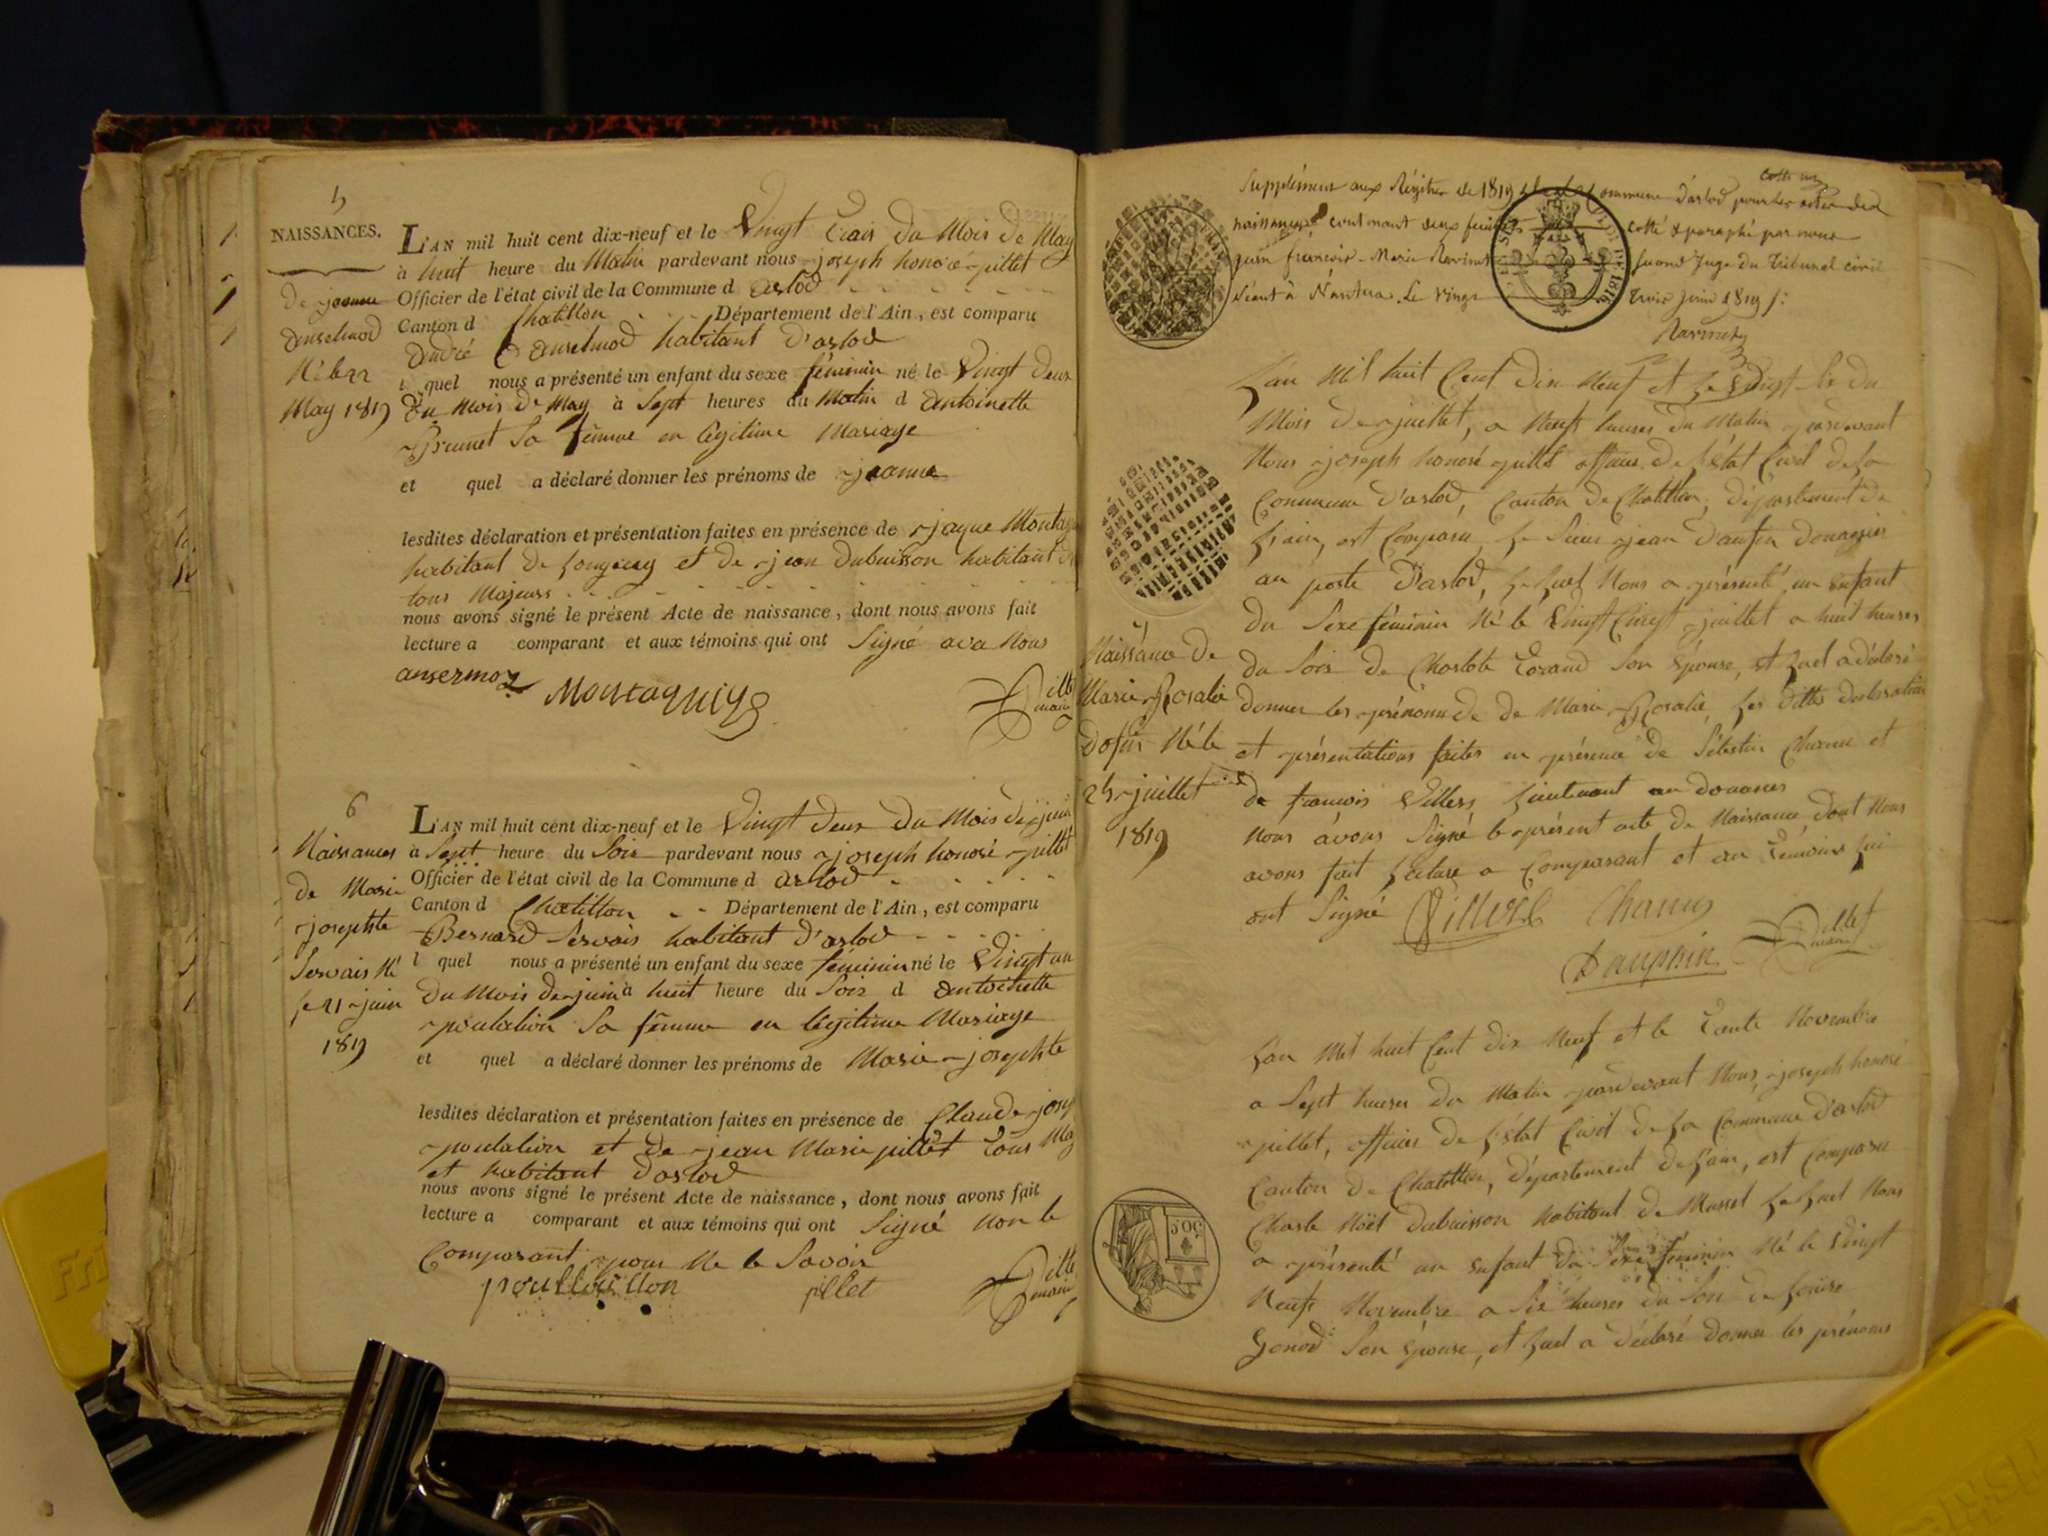 5
NAISSANCES.
de jeanne
anselmod
Né le 22
May 1819
L'AN mil huit cent dix-neuf et le Vingt trois du Mois de May
à huit heure du Matin pardevant nous joseph honoré pillet
Officier de l'état civil de la Commune d arlod
Canton d Chatillon Département de l'Ain, est comparu
andré anselmod habitant d'arlod
l quel nous a présenté un enfant du sexe féminin né le Vingt deux
du Mois de May à Sept heures du Matin d antoinette
Brunet Sa femme en légitime Mariage
et quel a déclaré donner les prénoms de jeanne
lesdites déclaration et présentation faites en présence de jaque
habitant de et de jean dubuisson habitant
tous Majeurs
nous avons signé le présent Acte de naissance, dont nous avons fait
lecture a comparant et aux témoins qui ont Signé avec Nous
ansermoz
6
Naissances
de Marie
josephte
Servais Né
le 21 juin
1819
L'AN mil huit cent dix-neuf et le Vingt deux du Mois de juin
à Sept heure du Soir pardevant nous joseph honoré pillet
Officier de l'état civil de la Commune d arlod
Canton d Chatillon Département de l'Ain, est comparu
Bernard Servais habitant d'arlod
l quel nous a présenté un enfant du sexe féminin né le Vingt un
du Mois de juin à huit heure du Soir d antoinette
Sa femme en légitime Mariage
et quel a déclaré donner les prénoms de Marie josephte
lesdites déclaration et présentation faites en présence de Claude
et de jean Marie pillet tous
et habitant d'arlod
nous avons signé le présent Acte de naissance, dont nous avons fait
lecture a comparant et aux témoins qui ont Signé non le
Comparant pour Ne le Savoir
pillet
Supplément aux Régitre de 1819 de la Commune d'arlod pour les actes de
naissances contenant deux feuillets cotté & paraphé par nous
françois Marie Juge du Tribunal civil
séant à Nantua. Le vingt trois juin 1819
L'an Mil huit Cent dix Neuf et le Vingt Six du
Mois de juillet, a Neuf heures du Matin pardevant
Nous joseph honoré pillet officier de l'état Civil de la
Commune d'arlod, Canton de Chatillon, département de
L'ain, est Comparu le Sieur jean
au poste d'arlod, le quel Nous a présenté un enfant
du Sexe féminin Né le Vingt Cinq juillet a huit heures
du Soir de Son épouse, et quel a déclaré
donner les prénoms de Marie Rosalie, les dittes déclaration
et présentations faites en présence de Célestin et
de françois Villers Lieutenant en douanes
Nous avons Signé le présent acte de Naissance dont Nous
avons fait Lecture a Comparant et au témoins qui
ont Signé
Dauphin
Naissance de
Marie Rosalie
Né le
25 juillet
1819
L'an Mil huit Cent dix Neuf et le trente Novembre
a Sept heures du Matin pardevant Nous joseph honoré
pillet, officier de l'état Civil de la Commune d'arlod
Canton de Chatillon, département de L'ain, est Comparu
Charle Noël dubuisson habitant de Mussel le quel Nous
a présenté un enfant du Sexe féminin Né le Vingt
Neuf Novembre a Six heures du Soir de
Gonod Son épouse, et quel a déclaré donner les prénoms